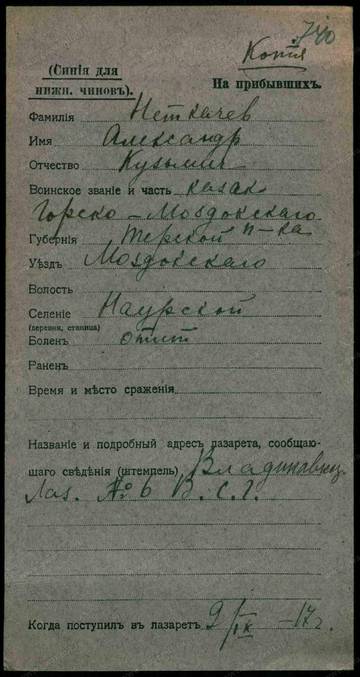 740
Копія
(Синія для
нижн. чиновъ).
На прибывшихъ.
Фамилія Неткачев
Имя Александр
Отчество Кузьмич
Воинское званіе и часть казак
Горско-Моздокскаго
п-ка
Губернія Терской
Уѣздъ Моздокскаго
Волость
Селеніе Наурской
(деревня, станица)
Боленъ отит
Раненъ
Время и мѣсто сраженія
Названіе и подробный адресъ лазарета, сообщаю-
щаго свѣдѣнія (штемпель) Владикавказ.
Лаз. № 6 В.С.Г.
Когда поступилъ въ лазаретъ 9/IX -17 г.